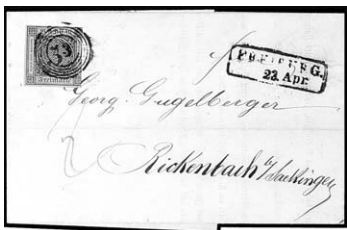 33
Freimarke
FREIBURG.
23. Apr.
Georg Gugelberger
Rickenbach b/Saekingen